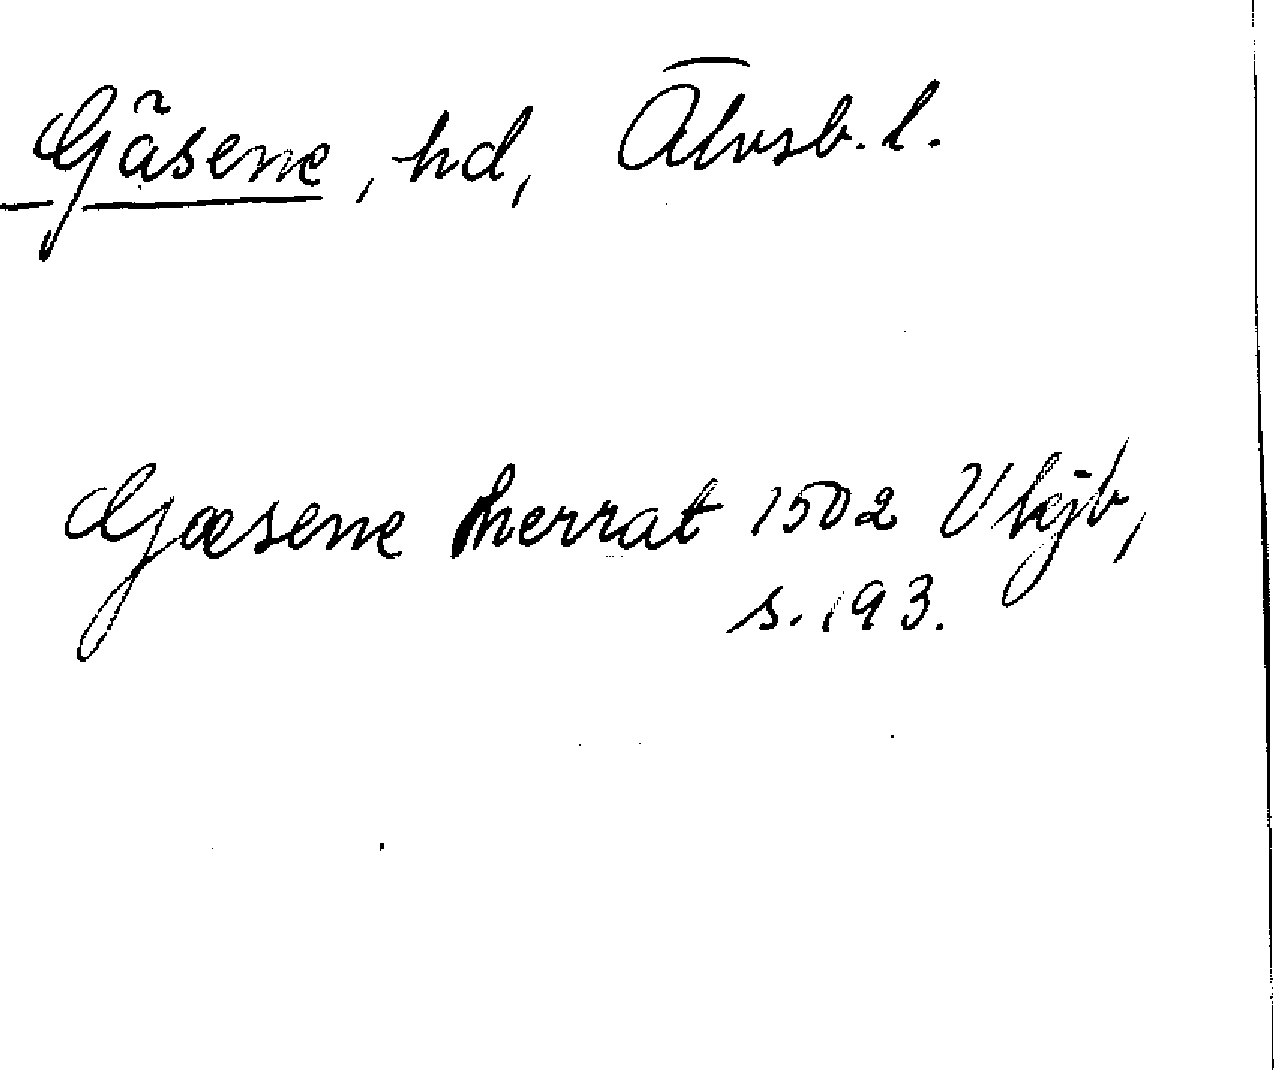 Gäsene, hd, Älvsb. l.
Gæsene herrat 1502 Vlsjb,
s. 193.